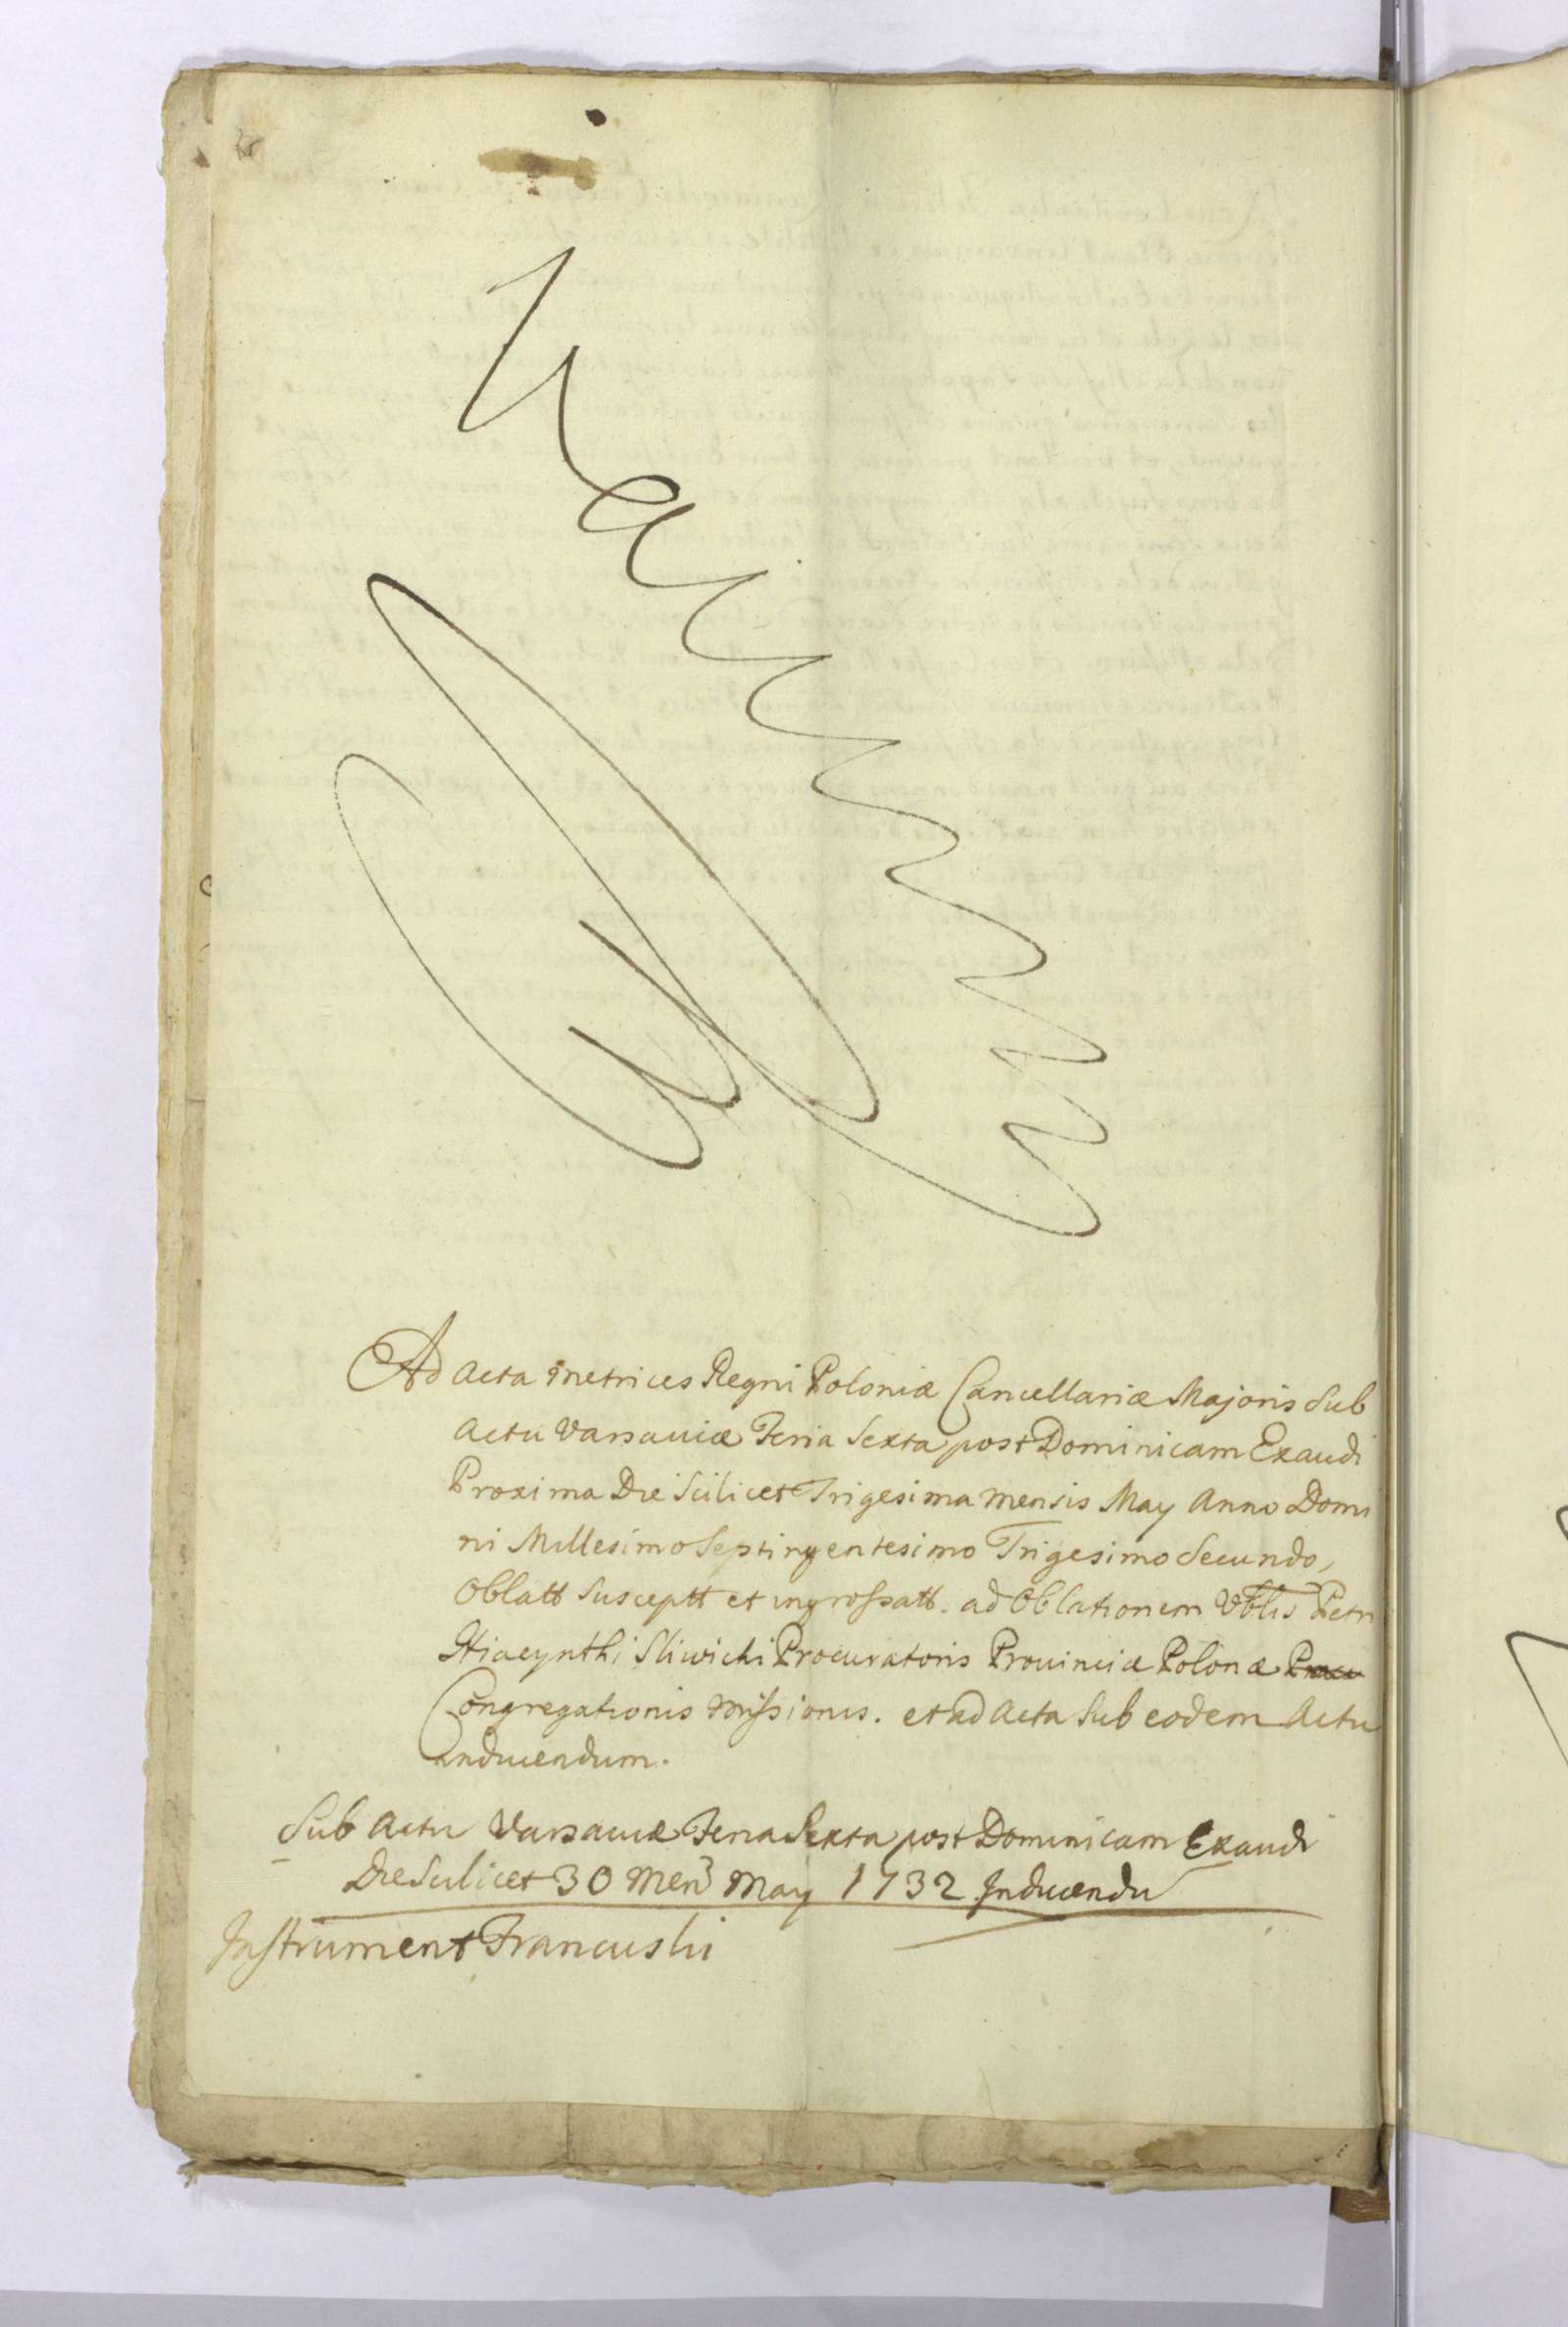 Ad Acta Metrices Regni Poloniæ Cancellariæ Majoris Sub
Actu Varsaviæ Feria Sexta post Dominicam Exaudi
Proxima Die Scilicet Trigesima mensis May Anno Domi
ni Millesimo Septingentesimo Trigesimo Secundo,
Oblatt Susceptt et ingrossatt. ad Oblationem Vblis Petri
Hiacynthi Sliwicki Procuratoris Provinciæ Polonæ
Congregationis Missionis. et ad Acta Sub eodem Actu
inducendum.
Sub Actu Varsaviæ Feria Sexta post Dominicam Exaudi
Die Scilicet 30 Men May 1732 Inducendu
Instrument Francuski